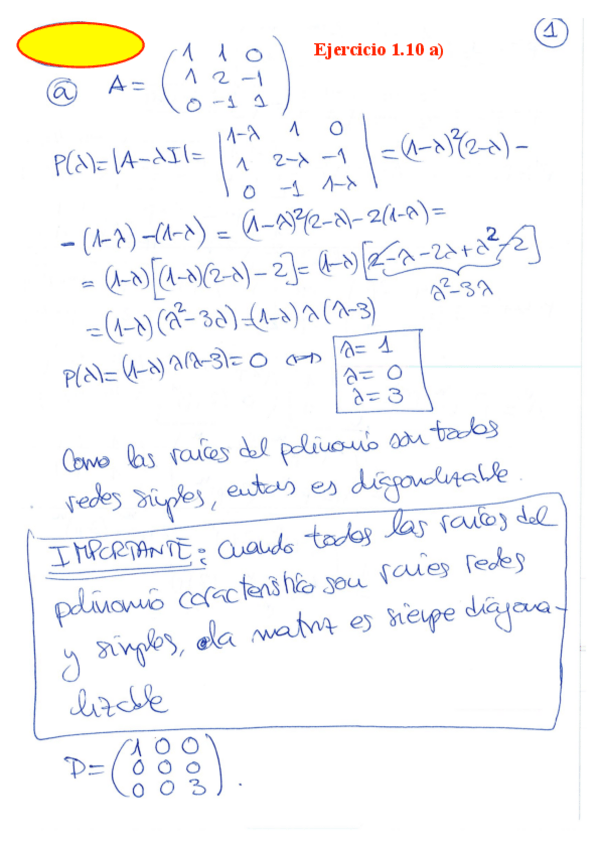 1
Ejercicio 1.10 a)
a) A = ( 1 1 0 ; 1 2 -1 ; 0 -1 1 )
P(λ)=|A-λI|= | 1-λ 1 0 ; 1 2-λ -1 ; 0 -1 1-λ | =(1-λ)²(2-λ) -
-(1-λ)-(1-λ) = (1-λ)²(2-λ)-2(1-λ)=
= (1-λ)[(1-λ)(2-λ)-2]= (1-λ)[2-λ-2λ+λ²-2]
λ²-3λ
=(1-λ)(λ²-3λ)=(1-λ)λ(λ-3)
P(λ)=(1-λ)λ(λ-3)=0 ⟺ λ= 1
λ= 0
λ= 3
Como las raíces del polinomio son todas
reales simples, entonces es diagonalizable.
IMPORTANTE: Cuando todas las raíces del
polinomio característico son raíces reales
y simples, la matriz es siempre diagona-
lizable
D= ( 1 0 0 ; 0 0 0 ; 0 0 3 ).